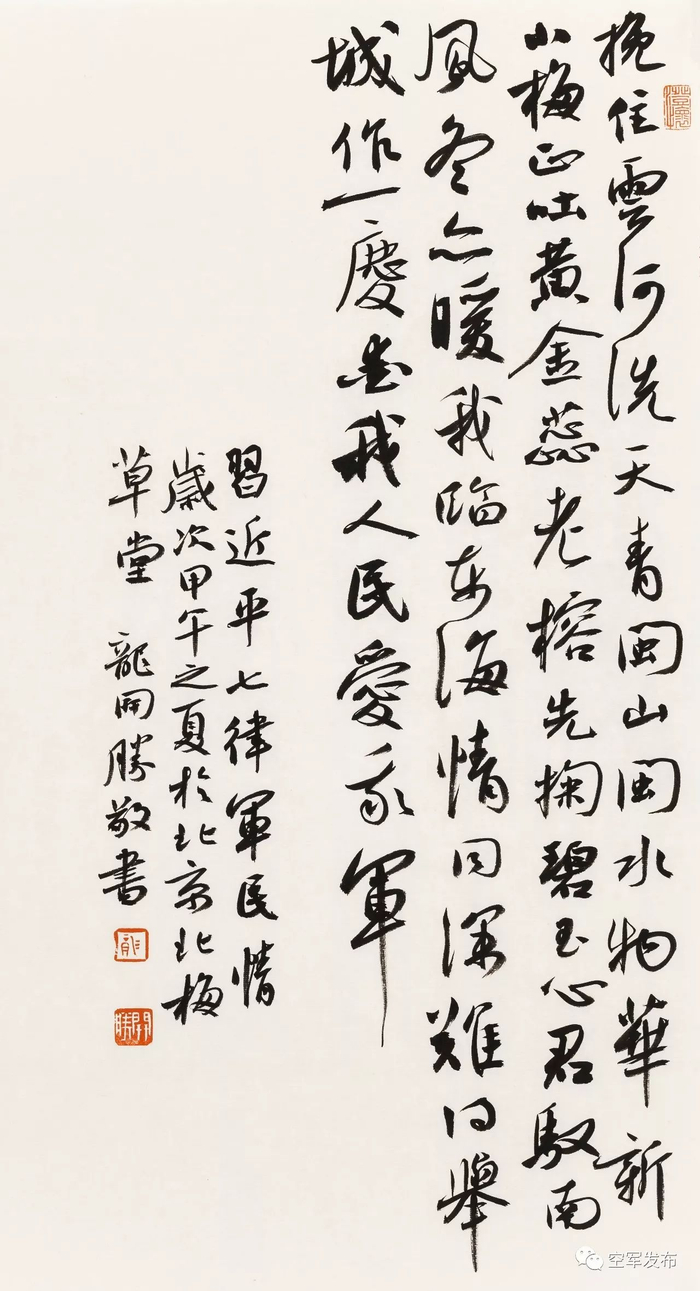 挽住雲河洗天青閩山閩水物華新
小梅正吐黄金蕊老榕先掬碧玉心君馭南
風冬亦暖我臨东海情同深難得舉
城作一慶爱我人民愛我軍
習近平七律軍民情
歲次甲午之夏於北京北梅
草堂 龍開勝敬書
空军发布